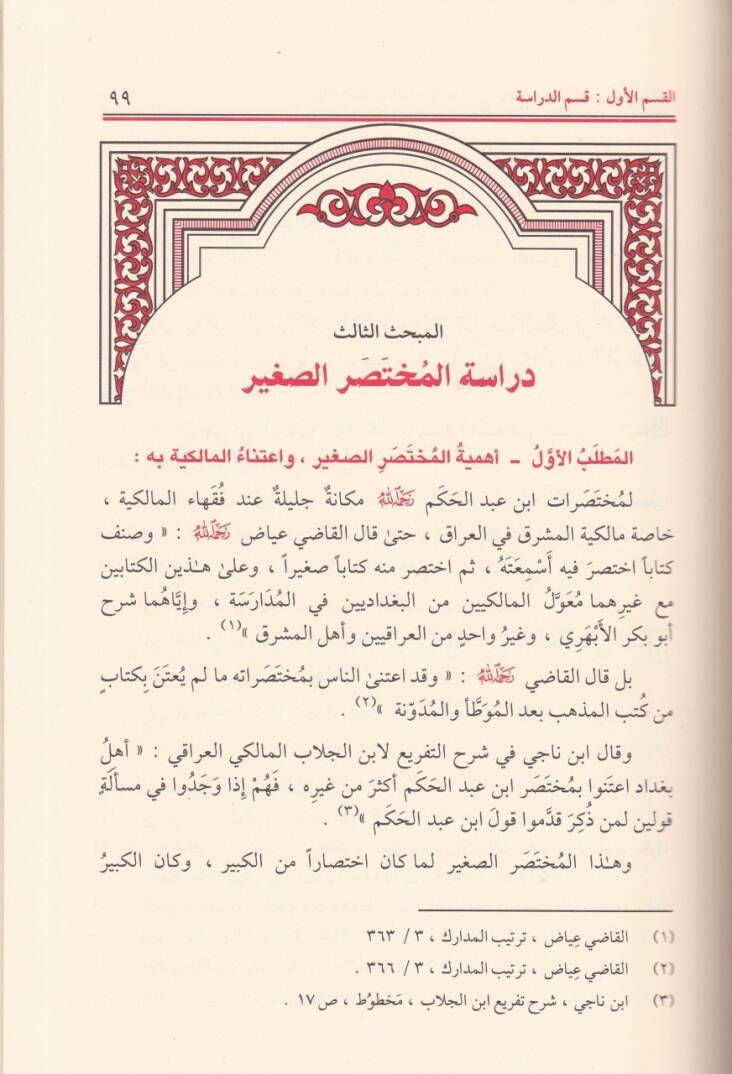 القسم الأول : قسم الدراسة
٩٩
المبحث الثالث
دراسة المُختَصَر الصغير
المَطلَبُ الأوَّلُ ـ أهميةُ المُختَصَرِ الصغير ، واعتناءُ المالكية به :
لمُختَصَرات ابن عبد الحَكَم رَحِمَهُ الله مكانةٌ جليلةٌ عند فُقَهاء المالكية ،
خاصة مالكية المشرق في العراق ، حتىٰ قال القاضي عياض رَحِمَهُ الله : « وصنف
كتاباً اختصرَ فيه أَسْمِعَتَهُ ، ثم اختصر منه كتاباً صغيراً ، وعلىٰ هـٰذين الكتابين
مع غيرِهما مُعَوَّلُ المالكيين من البغداديين في المُدَارَسَة ، وإيَّاهُما شرح
أبو بكر الأَبْهَرِي ، وغيرُ واحدٍ من العراقيين وأهل المشرق »(١) .
بل قال القاضي رَحِمَهُ الله : « وقد اعتنىٰ الناس بمُختَصَراته ما لم يُعتَنَ بِكتابٍ
من كُتب المذهب بعد المُوَطَّأ والمُدَوّنة »(٢) .
وقال ابن ناجي في شرح التفريع لابن الجلاب المالكي العراقي : « أهلُ
بغداد اعتَنوا بمُختَصَر ابن عبد الحَكَم أكثرَ من غيرِه ، فَهُمْ إذا وَجَدُوا في مسألَةٍ
قولين لمن ذُكِرَ قدَّموا قولَ ابن عبد الحَكَم »(٣) .
وهـٰذا المُختَصَر الصغير لما كان اختصاراً من الكبير ، وكان الكبيرُ
(١) القاضي عِياض ، ترتيب المدارك ، ٣ / ٣٦٣
(٢) القاضي عِياض ، ترتيب المدارك ، ٣ / ٣٦٦ .
(٣) ابن ناجي ، شرح تفريع ابن الجلاب ، مَخطوُط ، ص ١٧ .